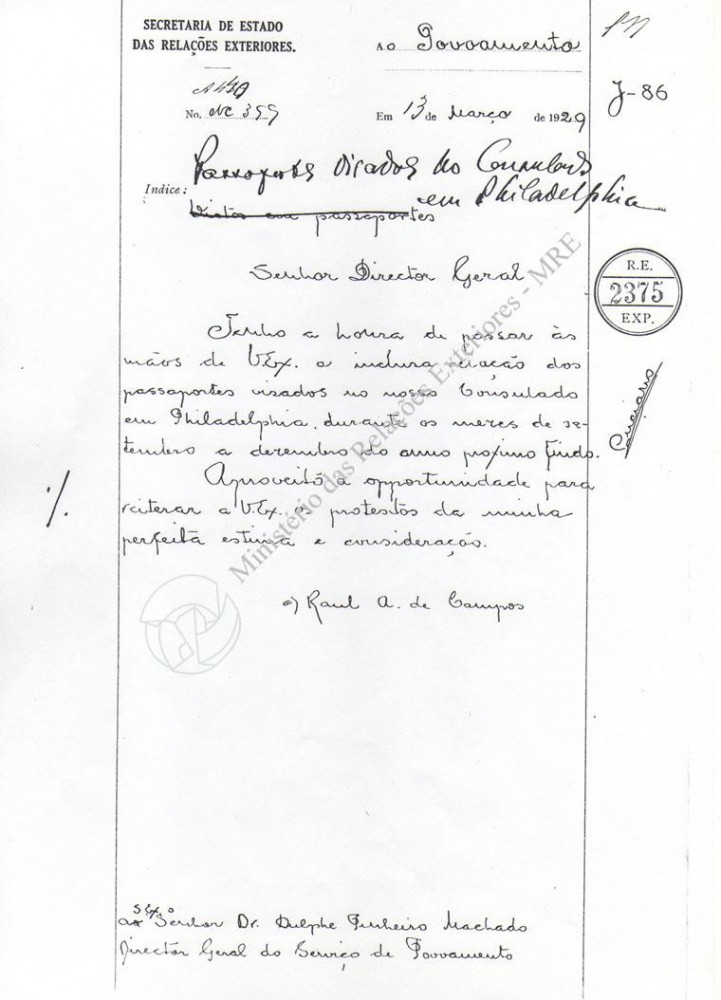 SECRETARIA DE ESTADO
DAS RELAÇÕES EXTERIORES.
AO Povoamento
J-86
No. NC 399
Em 13 de Março de 1929
Passaportes visados no Consulado
em Philadelphia
Indice: Vistos em passaportes
Senhor Director Geral
R.E.
2375
EXP.
Tenho a honra de passar às
mãos de V.Ex. a inclusa relação dos
passaportes visados no nosso Consulado
em Philadelphia, durante os mezes de se-
tembro a dezembro do anno proximo findo.
Aproveito a opportunidade para
reiterar a V.Ex. os protestos da minha
perfeita estima e consideração.
a) Raul A. de Campos
Ministério das Relações Exteriores - MRE
Senhor Dr. Dulphe Pinheiro Machado
Director Geral do Serviço de Povoamento